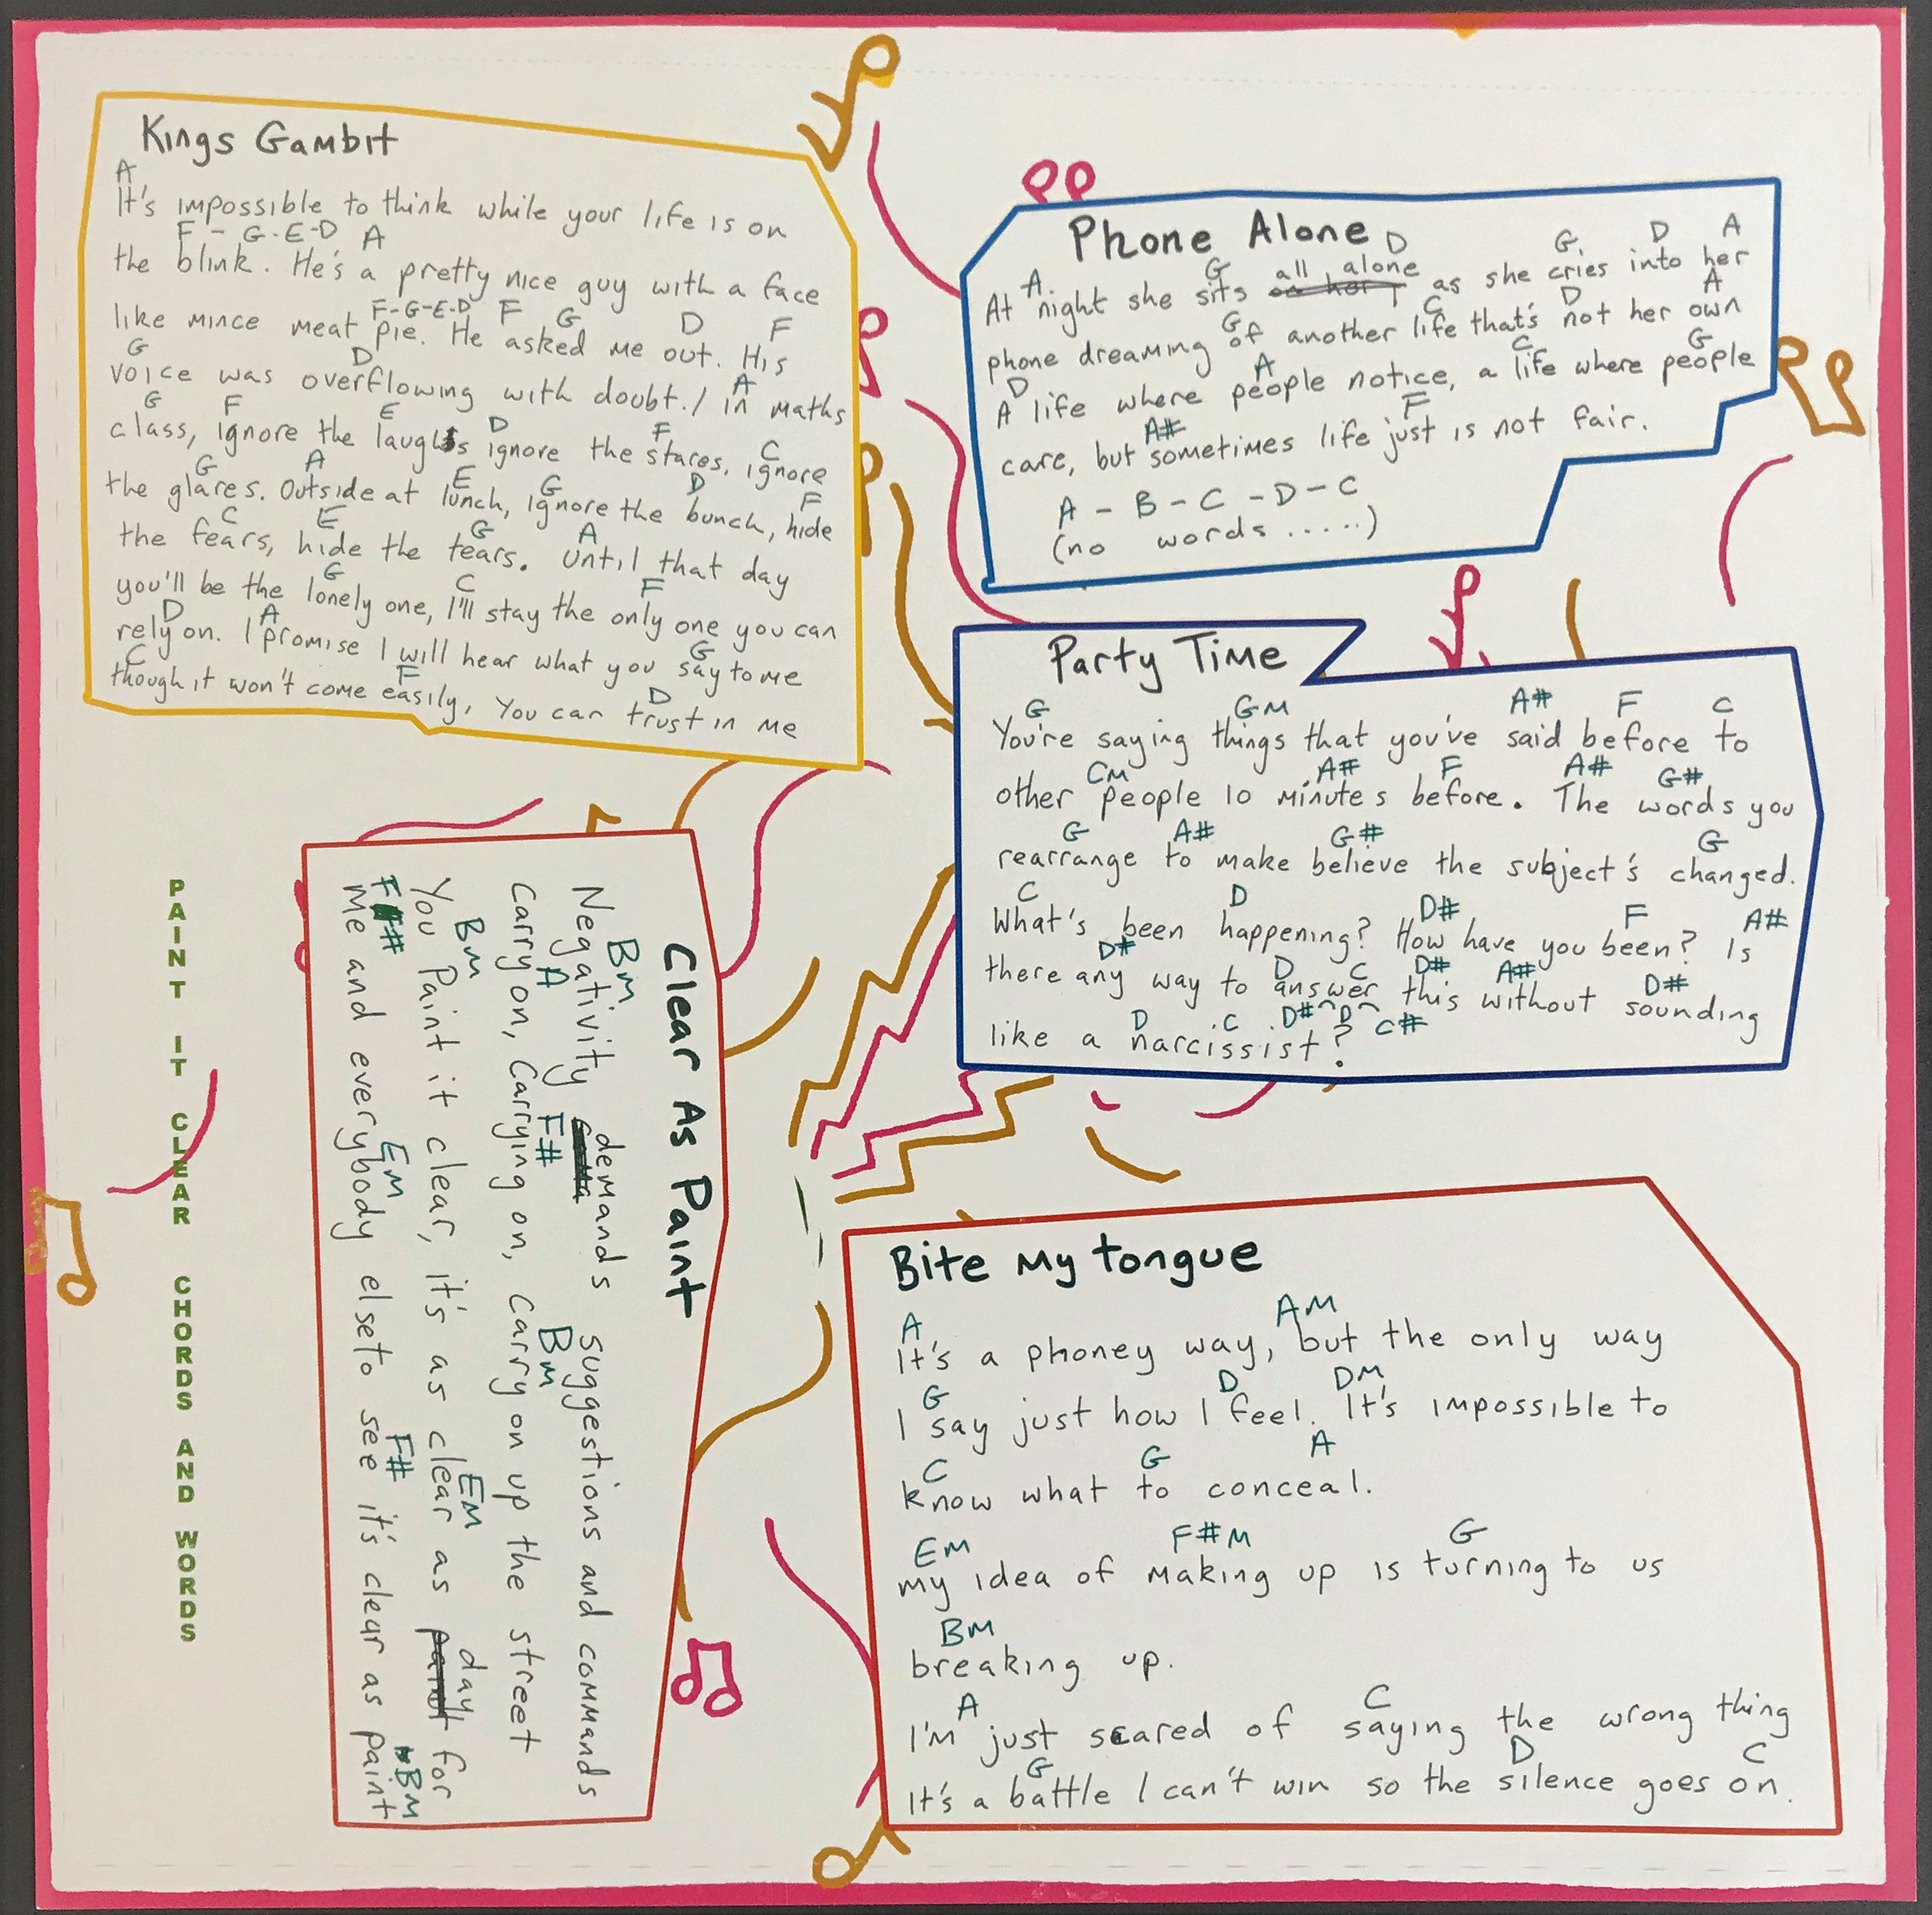 Kings Gambit
A
It's impossible to think while your life is on
F - G - E - D A
the blink. He's a pretty nice guy with a face
F-G-E-D F G D F
like mince meat pie. He asked me out. His
G D A
voice was overflowing with doubt. / in maths
G F E D F C
class, ignore the laughs ignore the stares, ignore
G A E G D F
the glares. Outside at lunch, ignore the bunch, hide
C E G A
the fears, hide the tears. Until that day
G C F
you'll be the lonely one, I'll stay the only one you can
D A G
rely on. I promise I will hear what you say to me
C F D
though it won't come easily, You can trust in me
Phone Alone
A. G D G. D A
At night she sits all alone as she cries into her
G C D A
phone dreaming of another life that's not her own
D A C G
A life where people notice, a life where people
A# F
care, but sometimes life just is not fair.
A - B - C - D - C
(no words .....)
Party Time
G GM A# F C
You're saying things that you've said before to
CM A# F A# G#
other people 10 minutes before. The words you
G A# G# G
rearrange to make believe the subject's changed.
C D D# F A#
What's been happening? How have you been? Is
D# D C D# A# D#
there any way to answer this without sounding
D C D# D C#
like a narcissist?
Clear As Paint
Bm
Negativity demands suggestions and commands
A F# Bm
Carry on, Carrying on, carry on up the street
Bm EM
You Paint it clear, it's as clear as day for
F# EM F# BM
Me and everybody else to see it's clear as paint
PAINT IT CLEAR CHORDS AND WORDS
Bite My tongue
A AM
It's a phoney way, but the only way
G D DM
I say just how I feel. It's impossible to
C G A
know what to conceal.
EM F#M G
my idea of making up is turning to us
BM
breaking up.
A C
I'm just scared of saying the wrong thing
G D C
It's a battle I can't win so the silence goes on.